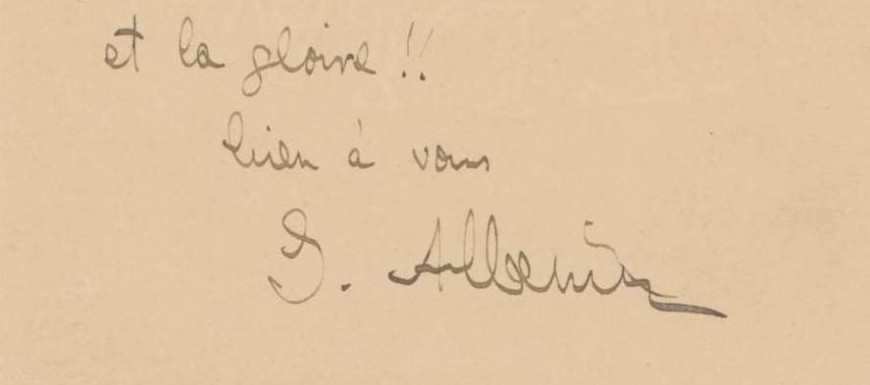 et la gloire !!
bien à vous
I. Albeniz